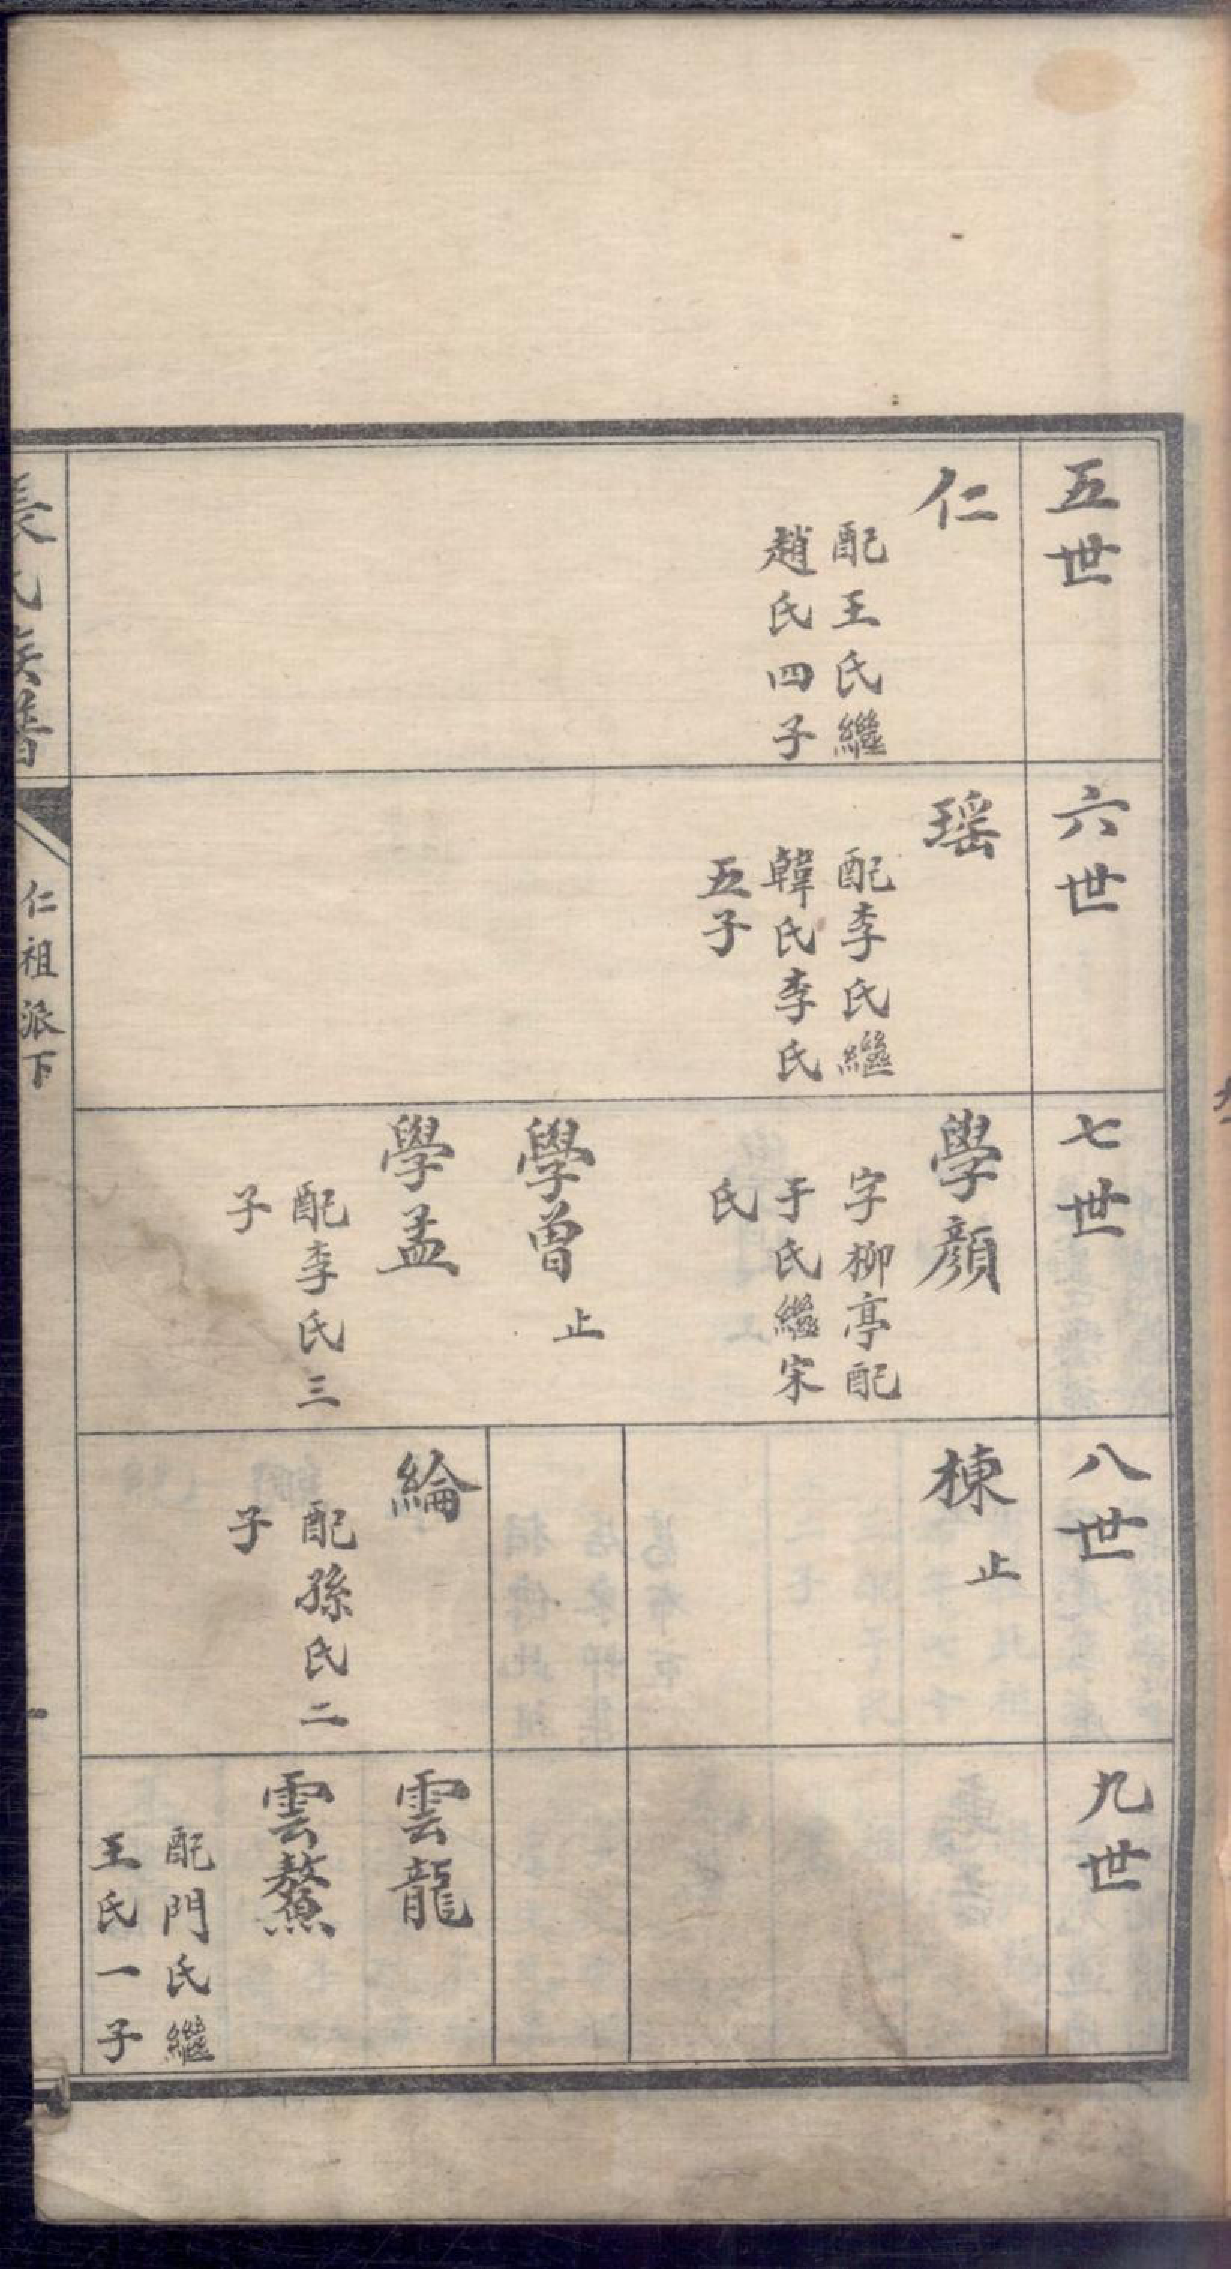 五世
仁
配王氏繼
趙氏四子
六世
瑶
配李氏繼
韓氏李氏
五子
七世
學顏
字柳亭配
于氏繼宋
氏
學曾
止
學孟
配李氏三
子
八世
棟
止
綸
配孫氏二
子
九世
雲龍
雲鰲
配門氏繼
王氏一子
長氏族譜
仁祖派下